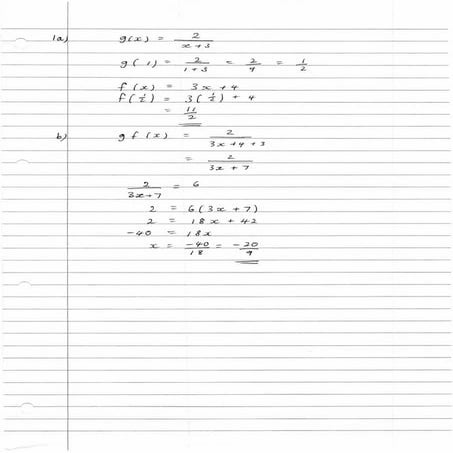 1a) g(x) = 2/(x+3)
g(1) = 2/(1+3) = 2/4 = 1/2
f(x) = 3x + 4
f(1/2) = 3(1/2) + 4
= 11/2
b) gf(x) = 2/(3x+4+3)
= 2/(3x+7)
2/(3x+7) = 6
2 = 6(3x+7)
2 = 18x + 42
-40 = 18x
x = -40/18 = -20/9